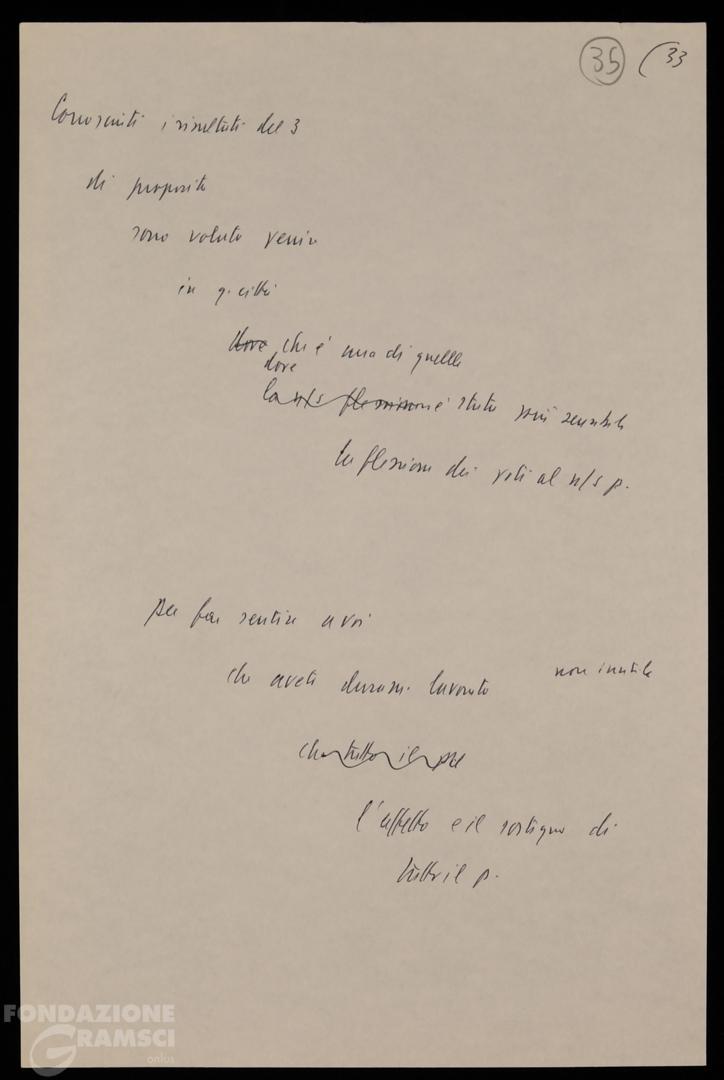 35 (33
Conosciuti i risultati del 3
di proposito
sono voluto venire
in q. città
dove che è una di quelle
dove
la n/s flessione è stata più sensibile
la flessione dei voti al n/s p.
per far sentire a voi
che avete duram. lavorato non inutile
che tutto il
l'affetto e il sostegno di
tutto il p.
FONDAZIONE
GRAMSCI
onlus